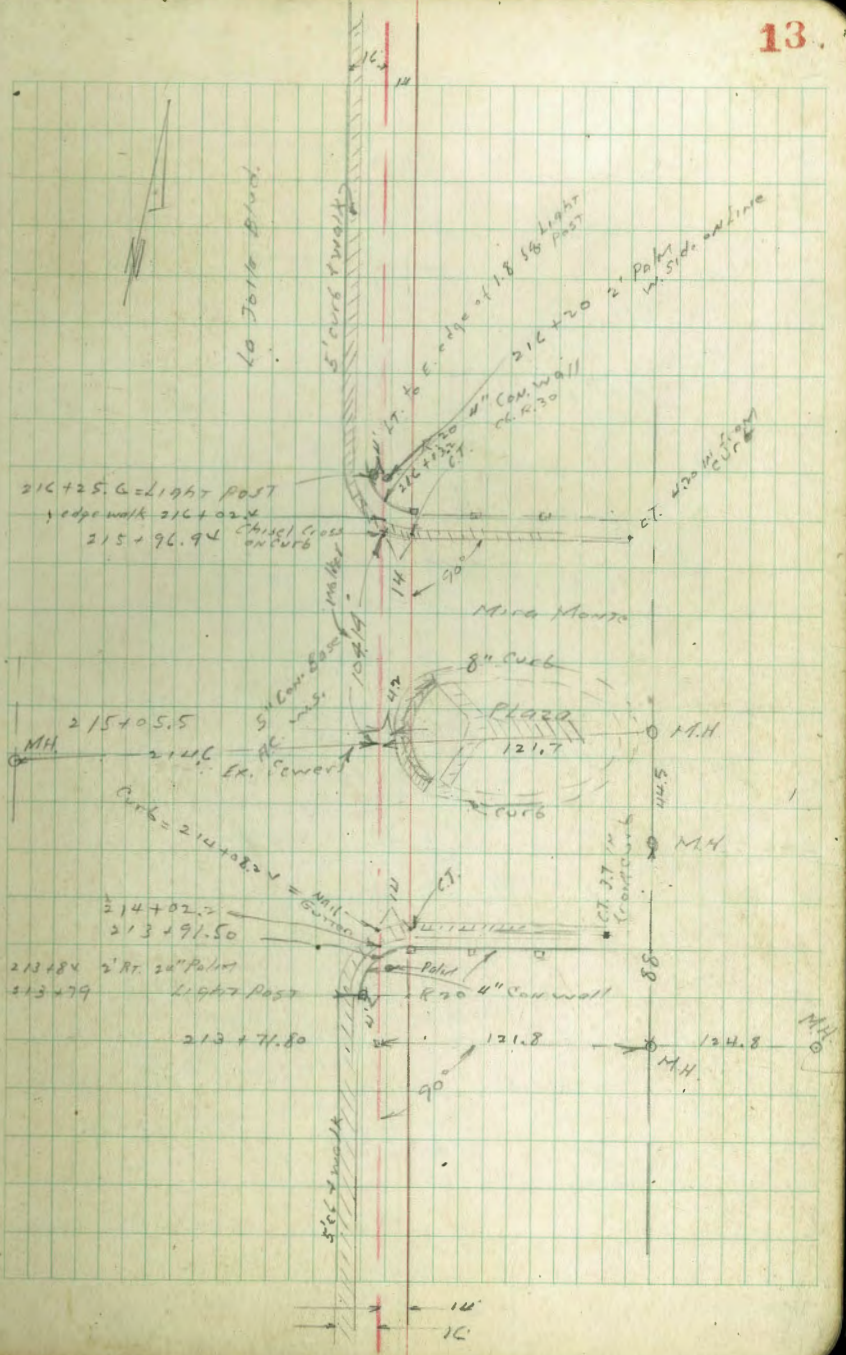 13.
16
14
La Jolla Blvd.
5' curb & walk
4' LT. to E. edge of 1.8 sq Light
Post
216 + 20 2' Palm
W. Side on Line
4" Con. Wall
R.30
216 + 13.2
C.T.
C.T. 4.20 in from
curb
216 + 25.6 = Light Post
edge walk 216 + 02.4
215 + 96.94 Chisel Cross
on Curb
14
90°
Mira Monte
5" Con. Base
8" Curb
4.2
Plaza
215 + 05.5
M.H.
214.6
Ex. Sewer
121.7
M.H.
44.5
Curb
M.H.
Curb = 214 + 08.2
Nail
Gutter
14
C.T.
C.T. 3.7 in
from curb
214 + 02.2
213 + 91.50
213 + 84 2' RT. 20" Palm
Palm
213 + 79 Light Post
R 20 4" Con wall
88
213 + 71.80
121.8
124.8
M.H.
M.H.
90°
5' cb & walk
14
16